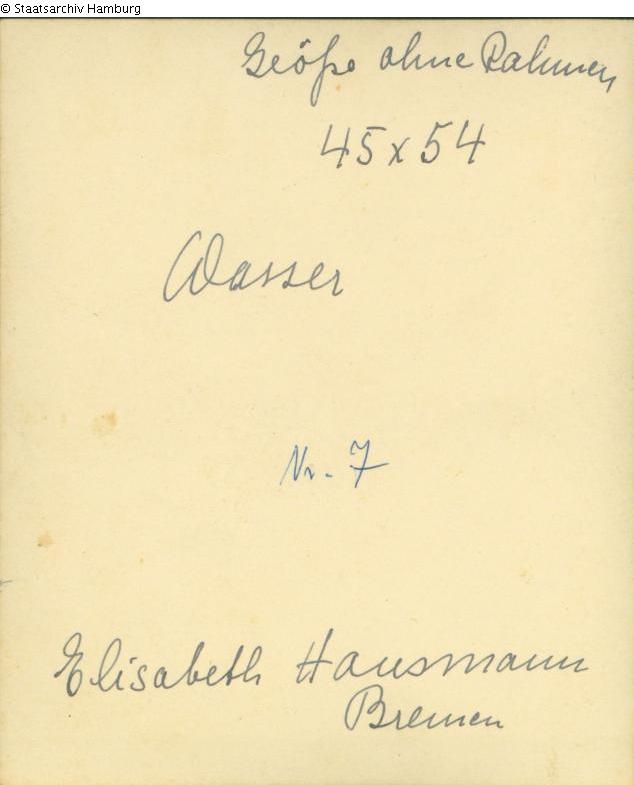 © Staatsarchiv Hamburg
Größe ohne Rahmen
45 x 54
Wasser
Nr. 7
Elisabeth Hausmann
Bremen